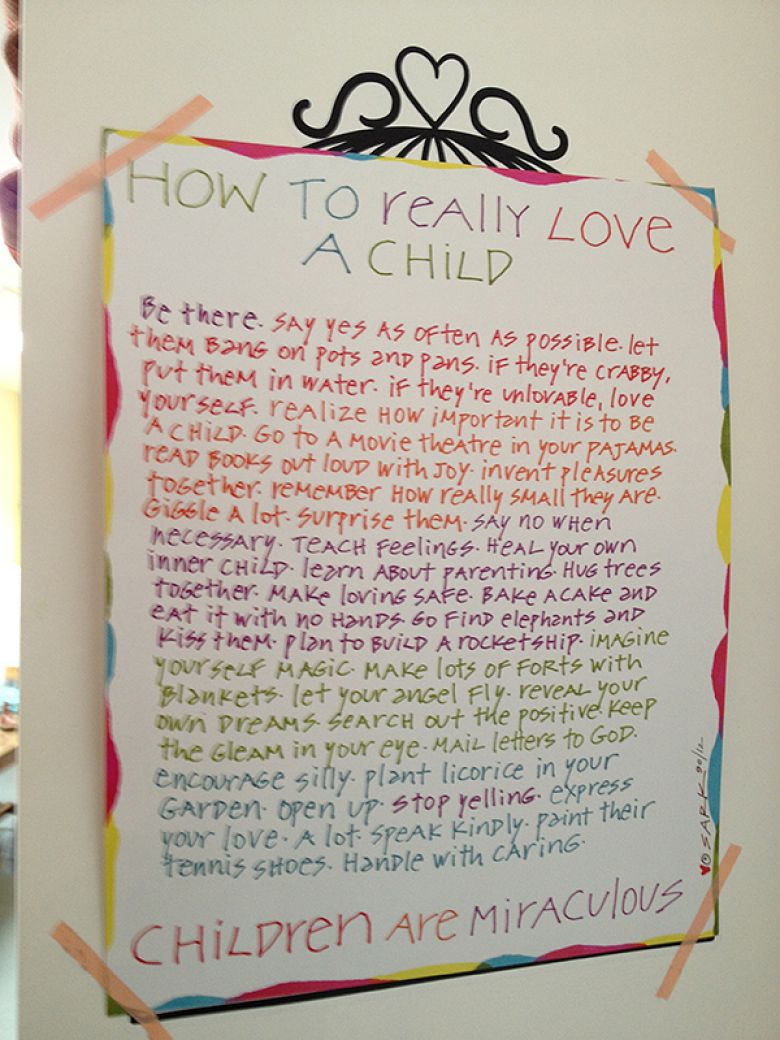 HOW TO reALLY LOVE
A CHiLD
Be there. SAy yes AS OFten AS possible. let
them BanG on pots and pans. if they're crABBy,
put them in WATer. if they're unlovABle, love
yourself. reALiZe HOW importAnt it is to Be
A CHiLD. GO to A Movie theAtre in your PAJAMAS.
reAD BOOKS out loud with Joy. invent pleASures
toGether. reMeMBer HOW reAlly SMAll they Are.
GiGGle A lot. Surprise them. SAy no when
necessAry. TeACH FeelinGS. HeAL your own
inner CHiLD. leArn ABout pArentinG. HuG trees
toGether. MAke lovinG SAFe. BAke A CAke and
eAt it with no HAnDS. GO FinD elepHAnts and
KiSS them. plAn to BuilD A rocketSHip. iMAGine
yourself MAGic. MAKe lots OF Forts with
BlAnkets. let your AnGel Fly. reveAL your
own DreAMS. SeArCH out the positive. Keep
the GleAM in your eye. MAiL letters to GoD.
encourAGe silly. plAnt licorice in your
GArDen. Open up. Stop yelling. express
your love. A lot. SpeAk KinDly. pAint their
tennis SHoes. HAnDle with CArinG.
CHiLDren Are MirAculous
♥©SARK 90/12